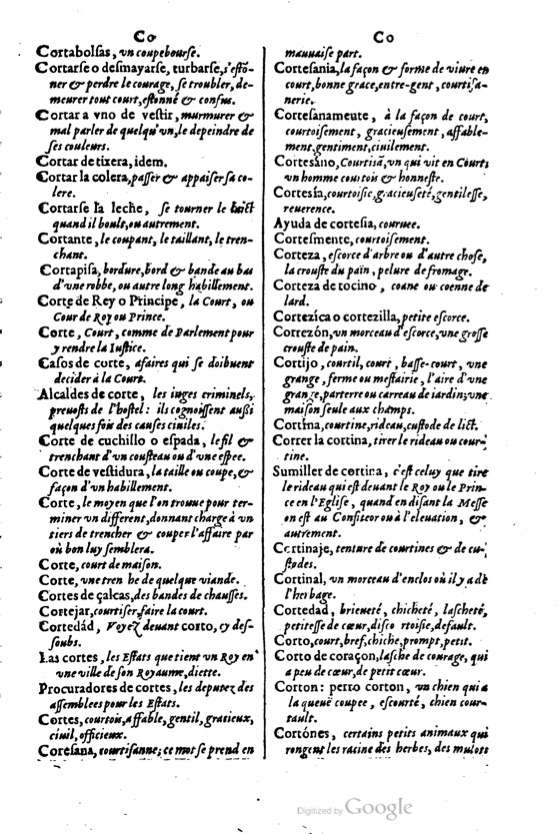 Co
Cortabolsas, vn coupebourse.
Cortarse o desmayarse, turbarse, s'estõ-
ner & perdre le courage, se troubler, de-
meurer tout court, estonné & confus.
Cortar a vno de vestir, murmurer &
mal parler de quelqu'vn, le depeindre de
ses couleurs.
Cortar de tixera, idem.
Cortar la colera, passer & appaiser sa co-
lere.
Cortarse la leche, se tourner le laict
quand il boult, ou autrement.
Cortante, le coupant, le taillant, le tren-
chant.
Cortapisa, bordure, bord & bande au bas
d'vne robbe, ou autre long habillement.
Corte de Rey o Principe, la Court, ou
Cour de Roy ou Prince.
Corte, Court, comme de Parlement pour
y rendre la Iustice.
Casos de corte, afaires qui se doibuent
decider à la Court.
Alcaldes de corte, les iuges criminels,
preuosts de l'hostel: ils cognoissent aussi
quelques fois des causes ciuiles.
Corte de cuchillo o espada, le fil &
trenchant d'vn cousteau ou d'vne espee.
Corte de vestidura, la taille ou coupe, &
façon d'vn habillement.
Corte, le moyen que l'on trouue pour ter-
miner vn different, donnant charge à vn
tiers de trencher & couper l'affaire par
où bon luy semblera.
Corte, court de maison.
Corte, vne tren he de quelque viande.
Cortes de çalcas, des bandes de chausses.
Cortejar, courtiser, faire la court.
Cortedád, Voyez deuant corto, cy des-
soubs.
Las cortes, les Estats que tient vn Roy en
vne ville de son Royaume, diette.
Procuradores de cortes, les deputez des
assemblees pour les Estats.
Cortes, courtois, affable, gentil, gratieux,
ciuil, officieux.
Cortesana, courtisanne; ce mot se prend en
Co
mauuaise part.
Cortesania, la façon & forme de viure en
court, bonne grace, entre-gent, courtisa-
nerie.
Cortesanamente, à la façon de court,
courtoisement, gracieusement, affable-
ment, gentiment, ciuilement.
Cortesano, Courtisã, vn qui vit en Court;
vn homme courtois & honneste.
Cortesía, courtoisie, gracieuseté, gentilesse,
reuerence.
Ayuda de cortesia, couruee.
Cortesmente, courtoisement.
Corteza, escorce d'arbre ou d'autre chose,
la crouste du pain, pelure de fromage.
Corteza de tocino, coane ou coenne de
lard.
Cortezica o cortezilla, petite escorce.
Cortezón, vn morceau d'escorce, vne grosse
crouste de pain.
Cortijo, courtil, court, basse-court, vne
grange, ferme ou mestairie, l'aire d'vne
grange, parterre ou carreau de iardin; vne
maison seule aux champs.
Cortina, courtine, rideau, custode de lict.
Correr la cortina, tirer le rideau ou cour-
tine.
Sumiller de cortina, c'est celuy que tire
le rideau qui est deuant le Roy ou le Prin-
ce en l'Eglise, quand en disant la Messe
on est au Confiteor ou à l'eleuation, &
autrement.
Cortinaje, tenture de courtines & de cu-
stodes.
Cortinal, vn morceau d'enclos où il y a dé
l'herbage.
Cortedad, brieueté, chicheté, lascheté,
petitesse de cœur, disco rtoisie, default.
Corto, court, bref, chiche, prompt, petit.
Corto de coraçon, lasche de courage, qui
a peu de cœur, de petit cœur.
Corton: perro corton, vn chien qui a
la queuë coupee, escourté, chien cour-
tault.
Cortónes, certains petits animaux qui
rongent les racine des herbes, des mulots
Digitized by Google